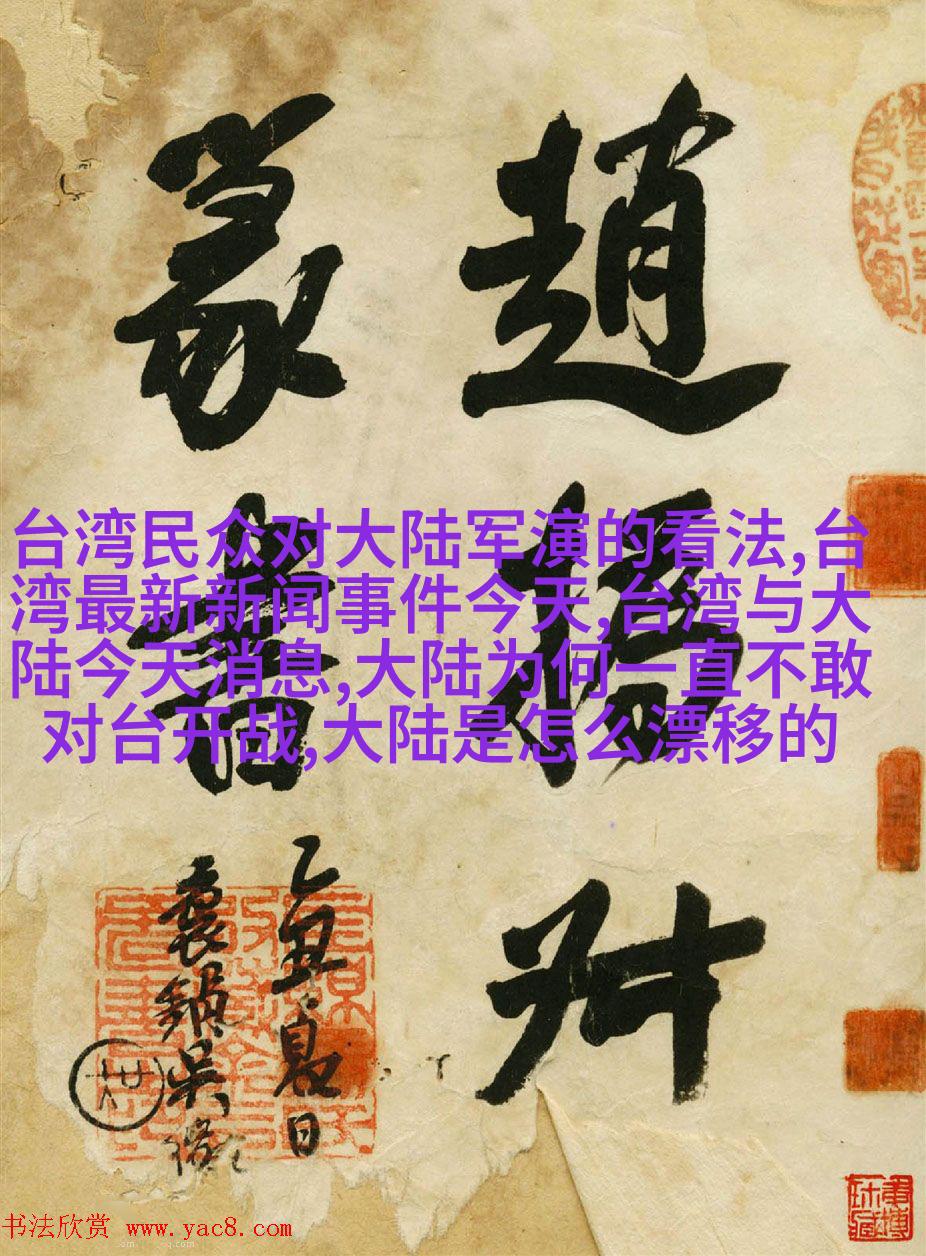 趙撝叔
篆書
乙亥夏日
吳
台湾民众对大陆军演的看法,台
湾最新新闻事件今天,台湾与大
陆今天消息,大陆为何一直不敢
对台开战,大陆是怎么漂移的
书法欣赏 www.yac8.com